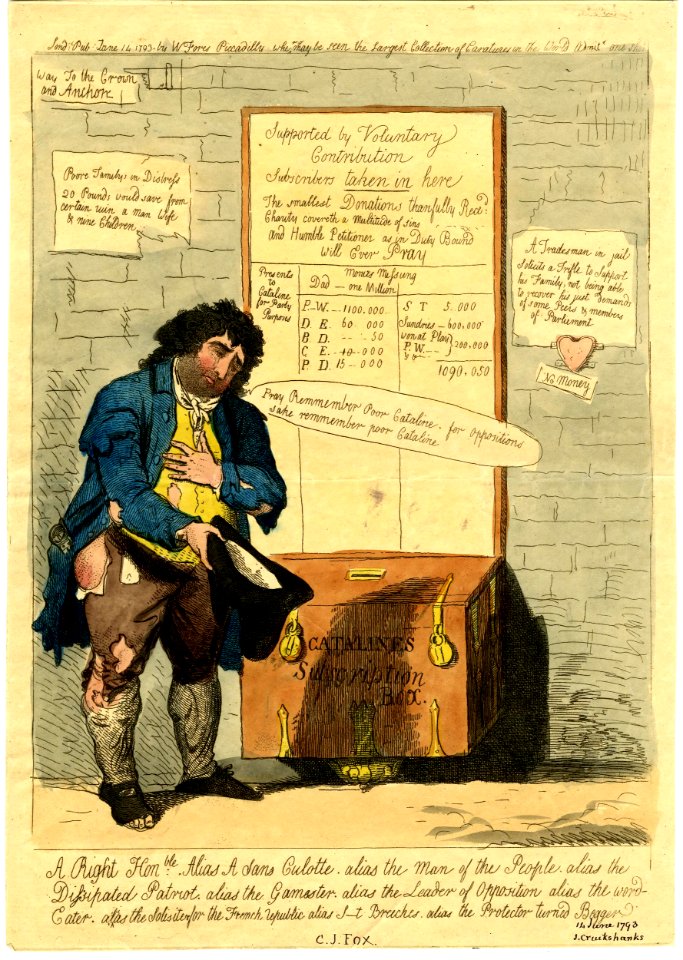 Lond: Pub June 14 1793 by W Fores Piccadilly where may be seen the Largest Collection of Caratures in the World Admtc one Sh
Way To the Crown
and Anchor
Poore Family in Distress
20 Pounds would save from
certain ruin a man Wife
& nine Children
Supported by Voluntary
Contribution
Subscribers taken in here
The smallest Donations thanfully Recd
Charity covereth a Multitude of sins
and Humble Petitioner as in Duty Bound
will Ever Pray
Presents
to
Cataline
for Party
Purposes
Monies Messung
Dad — one Million
P. W. — 1100.000
D. E. 60 000
B D. — . 50
C E. — 10-000
P D. 15 — 000
S T 5.000
Sundres — 600,000
won at Play
P.W. —
200,000
1090.050
A Tradesman in jail
Solicits a Trifle to Support
his Family, not being able
to recover his just Demands
of some Peers & members
of Parliment
No Money
Pray Remmember Poor Cataline. for Oppositions
sake remmember poor Cataline
CATALINES
Subscription
BOX.
A Right Honble. Alias A Sans Culotte. alias the Man of the People. alias the
Dissipated Patriot. alias the Gamester. alias the Leader of Opposition alias the word-
Eater. alias the Solesiter for the French Republic alias S—t Breeches. alias the Protector turn'd Begger
C.J. FOX.
14 June 1793
I. Cruikshanks